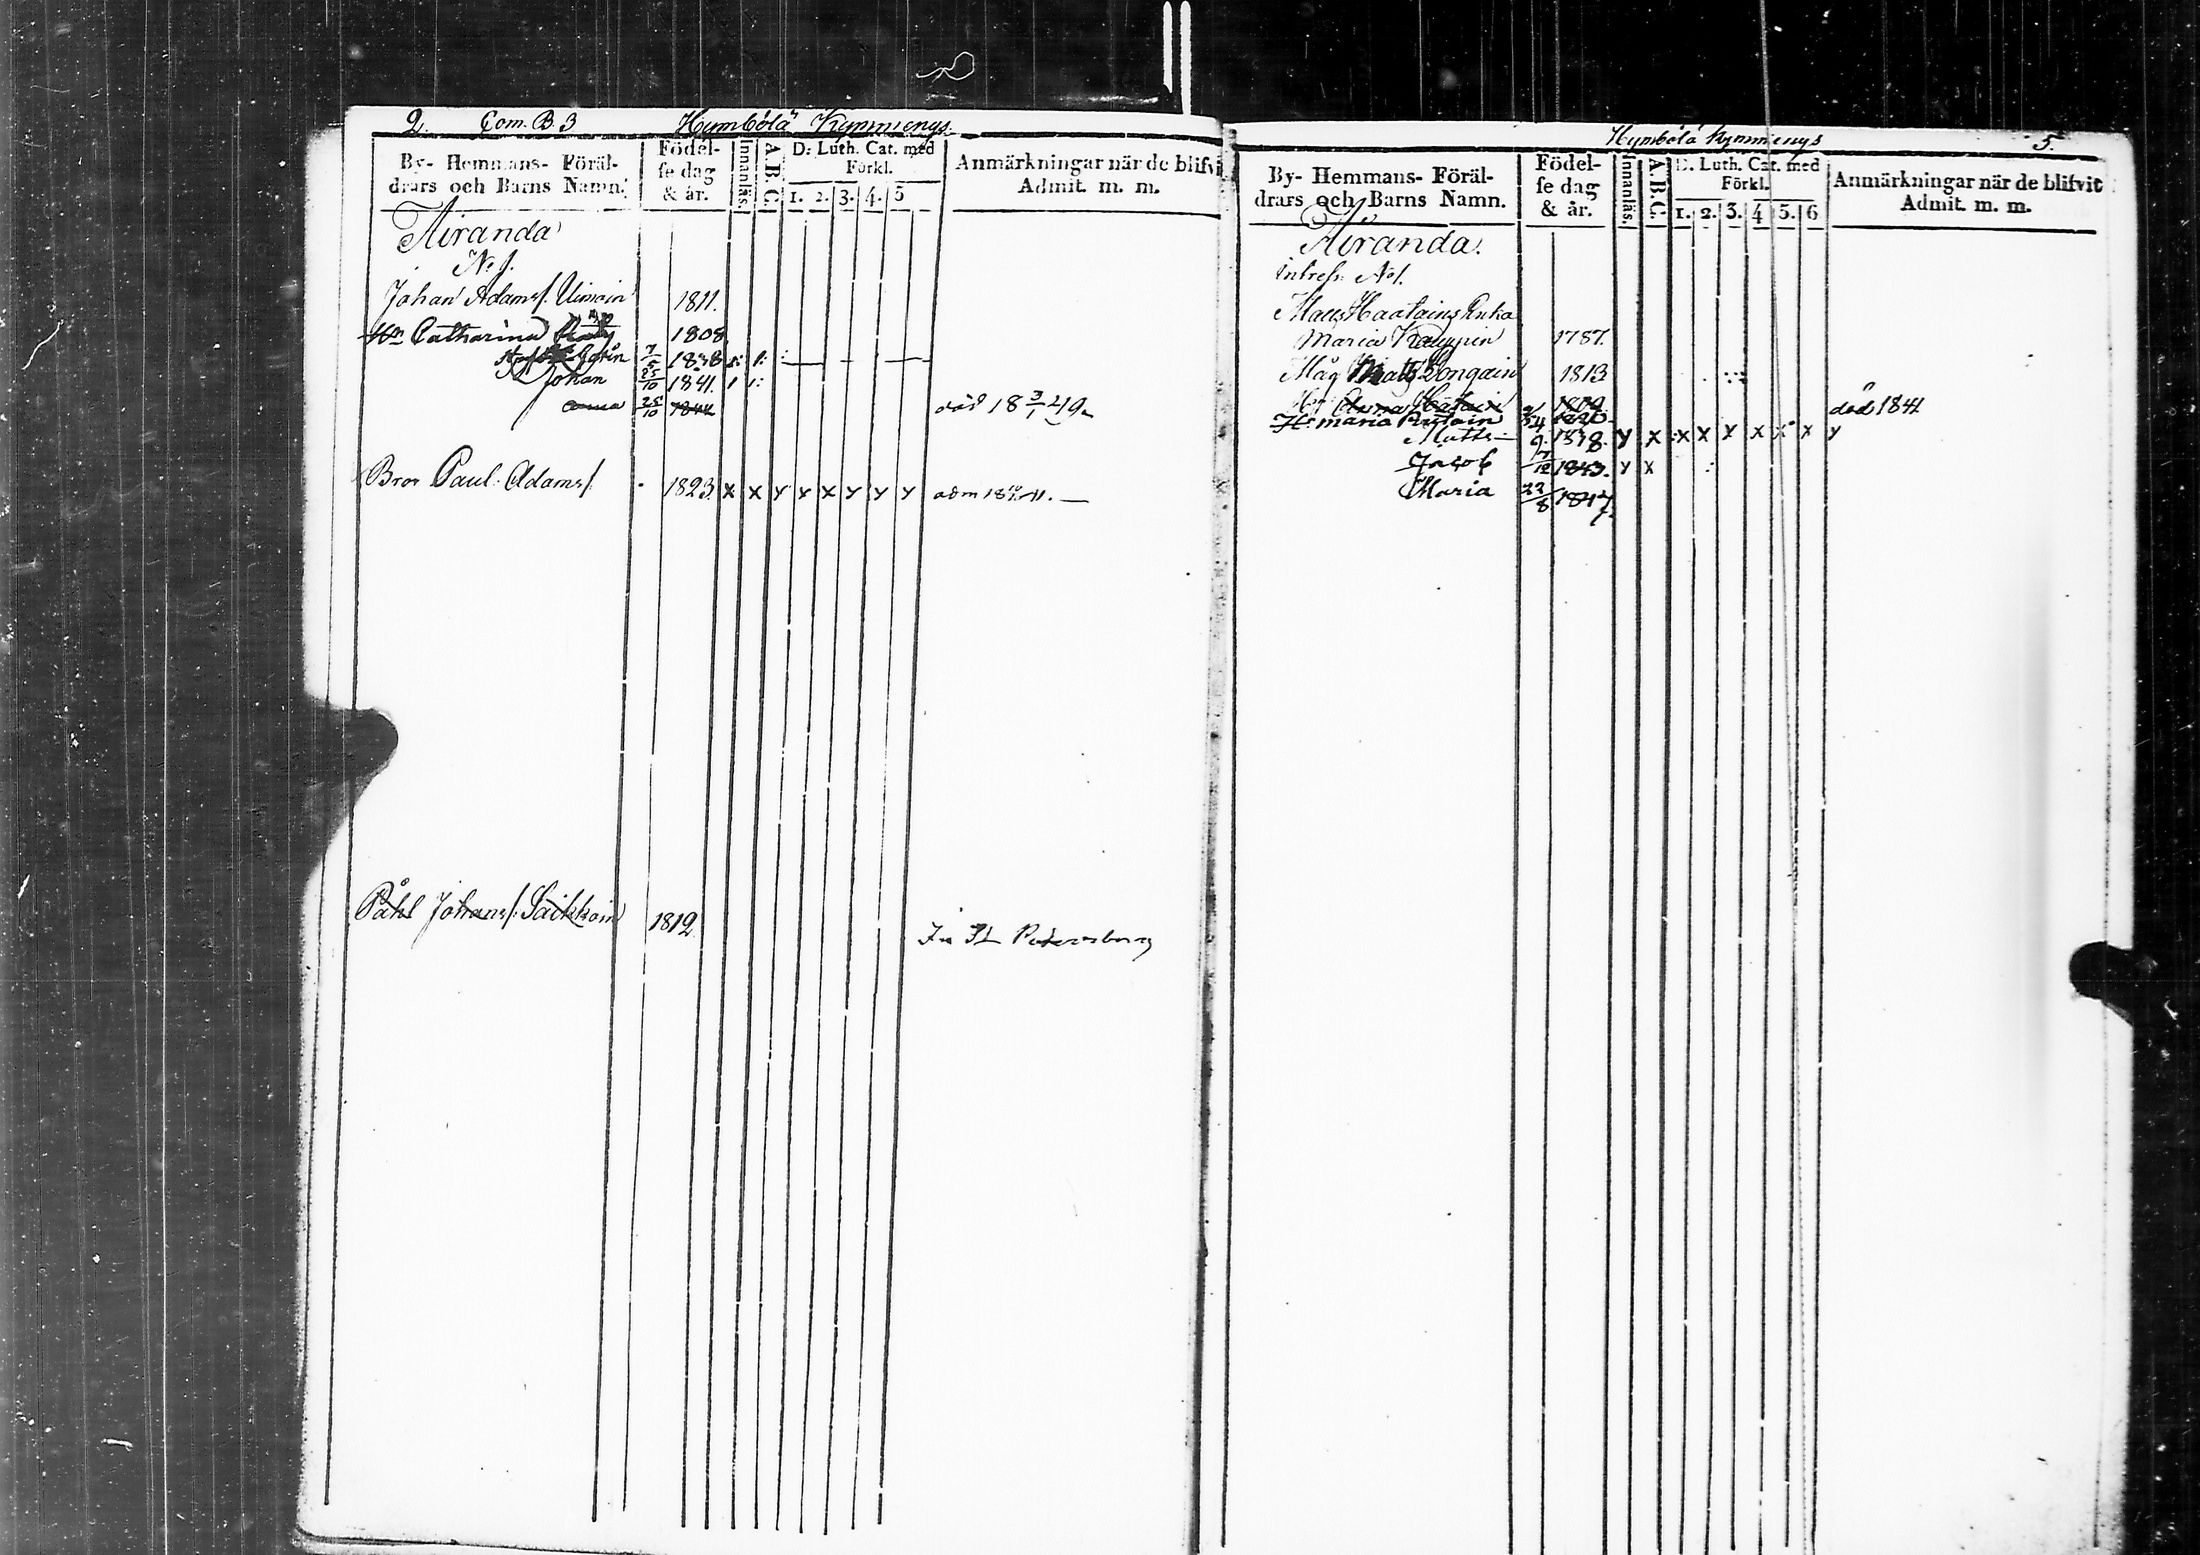 2. Com. B. 3 Hymbölä Kymmenys.
By- Hemmans- Föräl-
drars och Barns Namn.
Födel-
se dag
& år.
Innanläs.
A. B. C.
D: Luth. Cat. med
Förkl.
1. 2. 3. 4. 5
Anmärkningar när de blifvi
Admit. m. m.
Airanda
No 1.
Johan Adamss. Uimoin 1811.
Hn Catharina 1808
7/5 1838
Johan 25/10 1841.
Anna 25/10 1844 död 18 3/1 49
Bror Paul Adamss. 1823. x x y y x y y y adm 18 41. —
Påhl Johanss. Saikkoin 1812
In St Petersburg
Hymbölä Kymmenys 5.
By- Hemmans- Föräl-
drars och Barns Namn.
Födel-
se dag
& år.
Innanläs.
A. B. C.
D. Luth. Cat. med
Förkl.
1. 2. 3. 4 5. 6
Anmärkningar när de blifvit
Admit. m. m.
Airanda.
intress. No 1.
Matts Haatains Enka
Maria 1787.
Måg Matts 1813
Hr Anna 1819 död 1841
Hr Maria 1820
Matts 1838. y x x x y x x x y
Jacob 1843. y x
Maria 22/8 1847